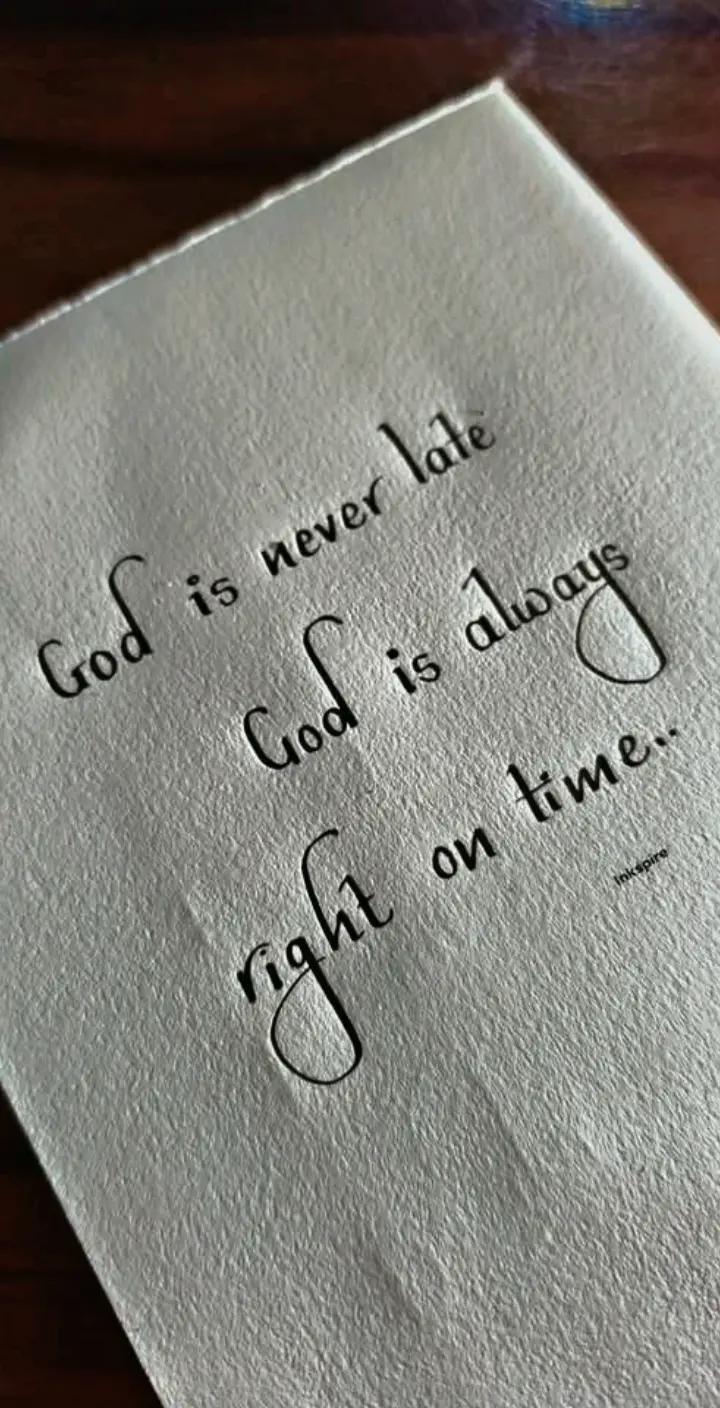 God is never late
God is always
right on time..
inkspire